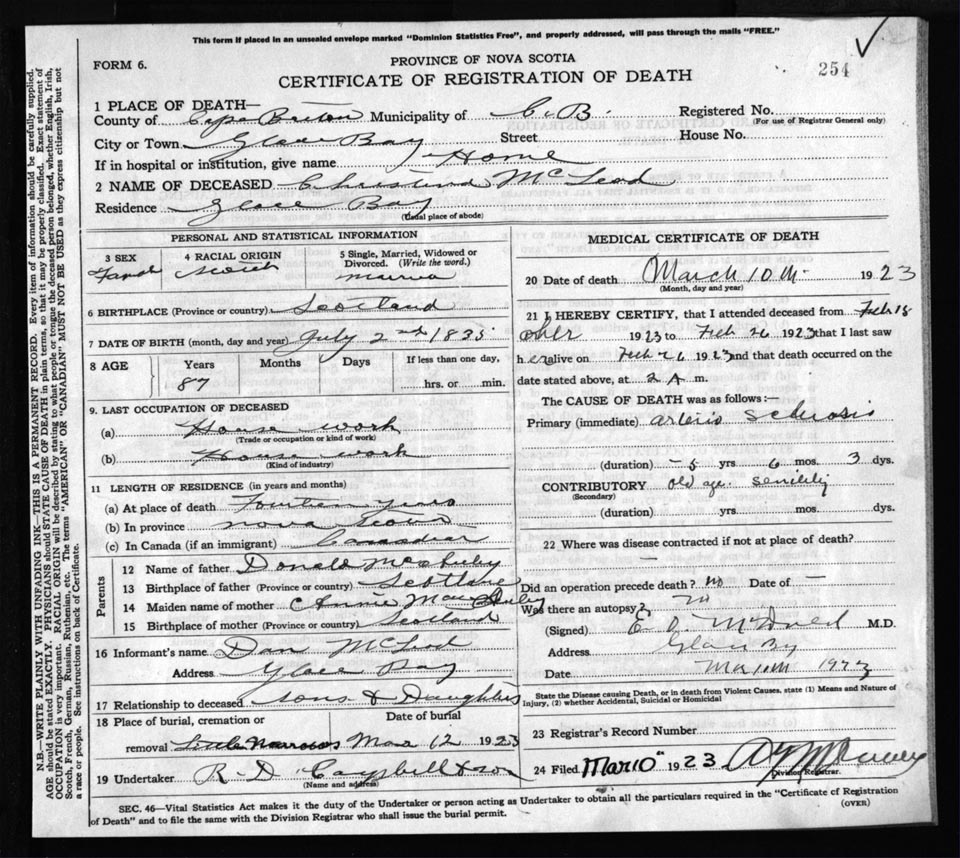 This form if placed in an unsealed envelope marked "Dominion Statistics Free", and properly addressed, will pass through the mails "FREE."
FORM 6.
PROVINCE OF NOVA SCOTIA
254
CERTIFICATE OF REGISTRATION OF DEATH
N.B.—WRITE PLAINLY WITH UNFADING INK—THIS IS A PERMANENT RECORD. Every item of information should be carefully supplied.
AGE should be stated EXACTLY. PHYSICIANS should STATE CAUSE OF DEATH in plain terms, so that it may be properly classified. Exact statement of
OCCUPATION is very important. RACIAL ORIGIN will be described by stating to what people or tongue the deceased person belonged, whether English, Irish,
Scotch, French, German, Russian, Ruthenian, etc. The terms "AMERICAN" OR "CANADIAN" MUST NOT BE USED as they express citizenship but not
a race or people. See instructions on back of Certificate.
1 PLACE OF DEATH—
County of Cape Breton Municipality of C. B. Registered No.
(For use of Registrar General only)
City or Town Glace Bay Street House No.
If in hospital or institution, give name Home
2 NAME OF DECEASED Christina McLeod
Residence Glace Bay
(Usual place of abode)
PERSONAL AND STATISTICAL INFORMATION
3 SEX
4 RACIAL ORIGIN
5 Single, Married, Widowed or Divorced. (Write the word.)
6 BIRTHPLACE (Province or country) Scotland
7 DATE OF BIRTH (month, day and year) July 2nd 1835
8 AGE Years Months Days If less than one day,
87 hrs. or min.
9. LAST OCCUPATION OF DECEASED
(a) House work
(Trade or occupation or kind of work)
(b) House work
(Kind of industry)
11 LENGTH OF RESIDENCE (in years and months)
(a) At place of death years
(b) In province Nova Scotia
(c) In Canada (if an immigrant)
Parents
12 Name of father Donald
13 Birthplace of father (Province or country) Scotland
14 Maiden name of mother Annie
15 Birthplace of mother (Province or country) Scotland
16 Informant's name Dan McLeod
Address Glace Bay
17 Relationship to deceased sons & Daughters
18 Place of burial, cremation or Date of burial
removal Little Narrows Mar 12 1923
19 Undertaker R. D. Campbell & son
(Name and address)
MEDICAL CERTIFICATE OF DEATH
20 Date of death March 10th 1923
(Month, day and year)
21 I HEREBY CERTIFY, that I attended deceased from Feb 18
1923 to Feb 26 1923 that I last saw
her alive on Feb 26 1923 and that death occurred on the
date stated above, at 2 A. m.
The CAUSE OF DEATH was as follows:—
Primary (immediate) arterio sclerosis
(duration) 5 yrs. 6 mos. 3 dys.
CONTRIBUTORY old age. senility
(Secondary)
(duration) yrs. mos. dys.
22 Where was disease contracted if not at place of death?
—
Did an operation precede death? no Date of —
Was there an autopsy? no
(Signed) M.D.
Address Glace Bay
Date Mar 10th 1923
State the Disease causing Death, or in death from Violent Causes, state (1) Means and Nature of
Injury, (2) whether Accidental, Suicidal or Homicidal
23 Registrar's Record Number
24 Filed Mar 10 1923
Division Registrar.
SEC. 46—Vital Statistics Act makes it the duty of the Undertaker or person acting as Undertaker to obtain all the particulars required in the "Certificate of Registration
of Death" and to file the same with the Division Registrar who shall issue the burial permit.
(OVER)